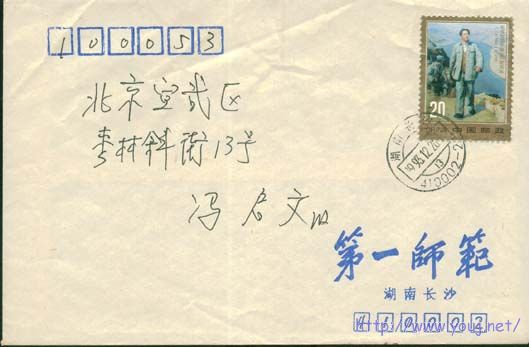 100053
北京宣武区
枣林斜街13号
冯君文收
20
中国邮政
1993.12.26
13
410002-2
第一師範
湖南长沙
410002
http://www.youj.net/